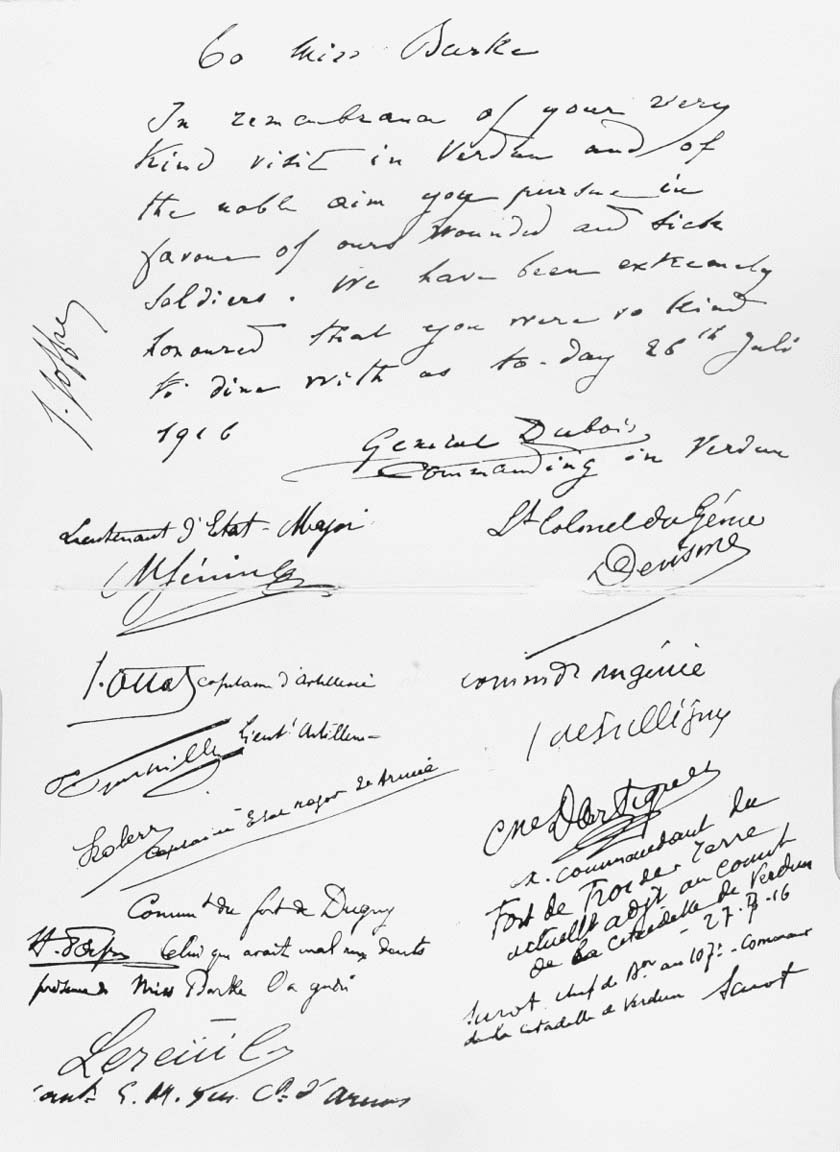 To Miss Burke
In remembrance of your very
Kind visit in Verdun and of
the noble aim you pursue in
favour of ours wounded and sick
soldiers. We have been extremely
honoured that you were so Kind
to dine with us to-day 26th Juli
1916
J. Joffre
General Dubois
Commanding in Verdun
Lieutenant d'Etat-Major
Lt Colonel du Génie
Denisme
capitaine d'artillerie
Lieutt Artillerie
Capitaine Etat major 2e Armée
Commt du fort de Dugny
Celui qui avait mal aux dents
présence Miss Burke l'a guéri
command. du génie
Cne Dartigues
ex. commandant du
Fort de Froide Terre
actuellt adjt au commt
de la citadelle de Verdun
- 27.7-16
Surot chef de Bon au 107e - Command
de la citadelle de Verdun Surot
E. M. d'armes